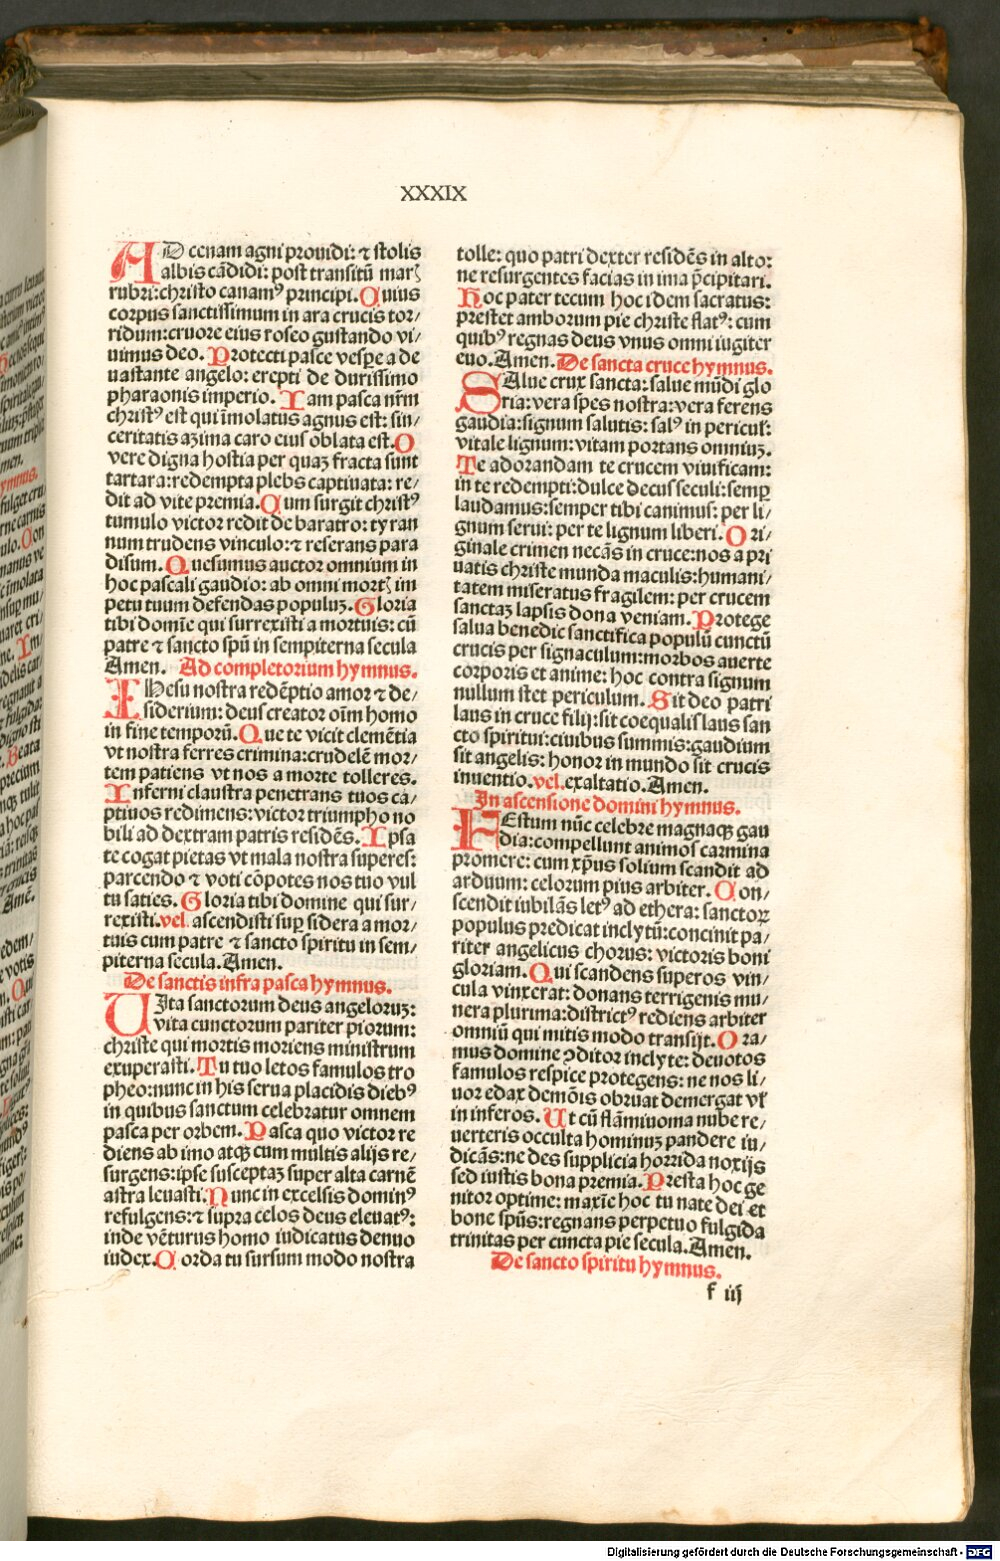 XXXIX
AD cenam agni prouidi: ⁊ stolis
albis cādidi: post transitū marꝭ
rubri: christo canamꝰ principi. Cuius
corpus sanctissimum in ara crucis tor/
ridum: cruore eius roseo gustando vi/
uimus deo. Protecti pasce vespe a de
uastante angelo: erepti de durissimo
pharaonis imperio. Iam pasca nr̄m
christꝰ est qui īmolatus agnus est: sin/
ceritatis azima caro eius oblata est. O
vere digna hostia per quaꝫ fracta sunt
tartara: redempta plebs captiuata: re/
dit ad vite premia. Cum surgit christꝰ
tumulo victor redit de baratro: tyran
num trudens vinculo: ⁊ reserans para
disum. Quesumus auctor omnium in
hoc pascali gaudio: ab omni mortꝭ im
petu tuum defendas populuꝫ. Gloria
tibi domīe qui surrexisti a mortuis: cū
patre ⁊ sancto spū in sempiterna secula
Amen. Ad completorium hymnus.
IHesu nostra redēptio amor ⁊ de/
siderium: deus creator oīm homo
in fine temporū. Que te vicit clemētia
vt nostra ferres crimina: crudelē mor/
tem patiens vt nos a morte tolleres.
Inferni claustra penetrans tuos ca/
ptiuos redimens: victor triumpho no
bili ad dextram patris residēs. Ipsa
te cogat pietas vt mala nostra superes:
parcendo ⁊ voti cōpotes nos tuo vul
tu saties. Gloria tibi domine qui sur/
rexisti. vel ascendisti suꝑ sidera a mor/
tuis cum patre ⁊ sancto spiritu in sem/
piterna secula. Amen.
De sanctis infra pasca hymnus.
UIta sanctorum deus angeloruꝫ:
vita cunctorum pariter piorum:
christe qui mortis moriens ministrum
exuperasti. Tu tuo letos famulos tro
pheo: nunc in his serua placidis diebꝰ
in quibus sanctum celebratur omnem
pasca per orbem. Pasca quo victor re
diens ab imo atqꝫ cum multis alijs re/
surgens: ipse susceptaꝫ super alta carnē
astra leuasti. Nunc in excelsis dominꝰ
refulgens: ⁊ supra celos deus eleuatꝰ:
inde vēturus homo iudicatus denuo
iudex. Corda tu sursum modo nostra
tolle: quo patri dexter residēs in alto:
ne resurgentes facias in ima p̄cipitari.
Hoc pater tecum hoc idem sacratus:
prestet amborum pie christe flatꝰ: cum
quibꝰ regnas deus vnus omni iugiter
euo. Amen. De sancta cruce hymnus.
SAlue crux sancta: salue mūdi glo
ria: vera spes nostra: vera ferens
gaudia: signum salutis: salꝰ in pericuſ:
vitale lignum: vitam portans omniuꝫ.
Te adorandam te crucem viuificam:
in te redempti: dulce decus seculi: semꝑ
laudamus: semper tibi canimus: per li/
gnum serui: per te lignum liberi. Ori/
ginale crimen necās in cruce: nos a pri
uatis christe munda maculis: humani/
tatem miseratus fragilem: per crucem
sanctaꝫ lapsis dona veniam. Protege
salua benedic sanctifica populū cunctū
crucis per signaculum: morbos auerte
corporis et anime: hoc contra signum
nullum stet periculum. Sit deo patri
laus in cruce filij: sit coequalis laus san
cto spiritui: ciuibus summis: gaudium
sit angelis: honor in mundo sit crucis
inuentio. vel. exaltatio. Amen.
In ascensione domini hymnus.
FEstum nūc celebre magnaqꝫ gau
dia: compellunt animos carmina
promere: cum xp̄us solium scandit ad
arduum: celorum pius arbiter. Con/
scendit iubilās letꝰ ad ethera: sanctoꝝ
populus predicat inclytū: concinit pa/
riter angelicus chorus: victoris boni
gloriam. Qui scandens superos vin/
cula vinxerat: donans terrigenis mu/
nera plurima: districtꝰ rediens arbiter
omniū qui mitis modo transijt. Ora/
mus domine ꝯditor inclyte: deuotos
famulos respice protegens: ne nos li/
uor edax demōis obruat demergat vꝉ
in inferos. Ut cū flāmiuoma nube re/
uerteris occulta hominuꝫ pandere iu/
dicās: ne des supplicia horrida noxijs
sed iustis bona premia. Presta hoc ge
nitor optime: maxīe hoc tu nate dei et
bone spūs: regnans perpetuo fulgida
trinitas per cuncta pie secula. Amen.
De sancto spiritu hymnus.
f iij
Digitalisierung gefördert durch die Deutsche Forschungsgemeinschaft - DFG